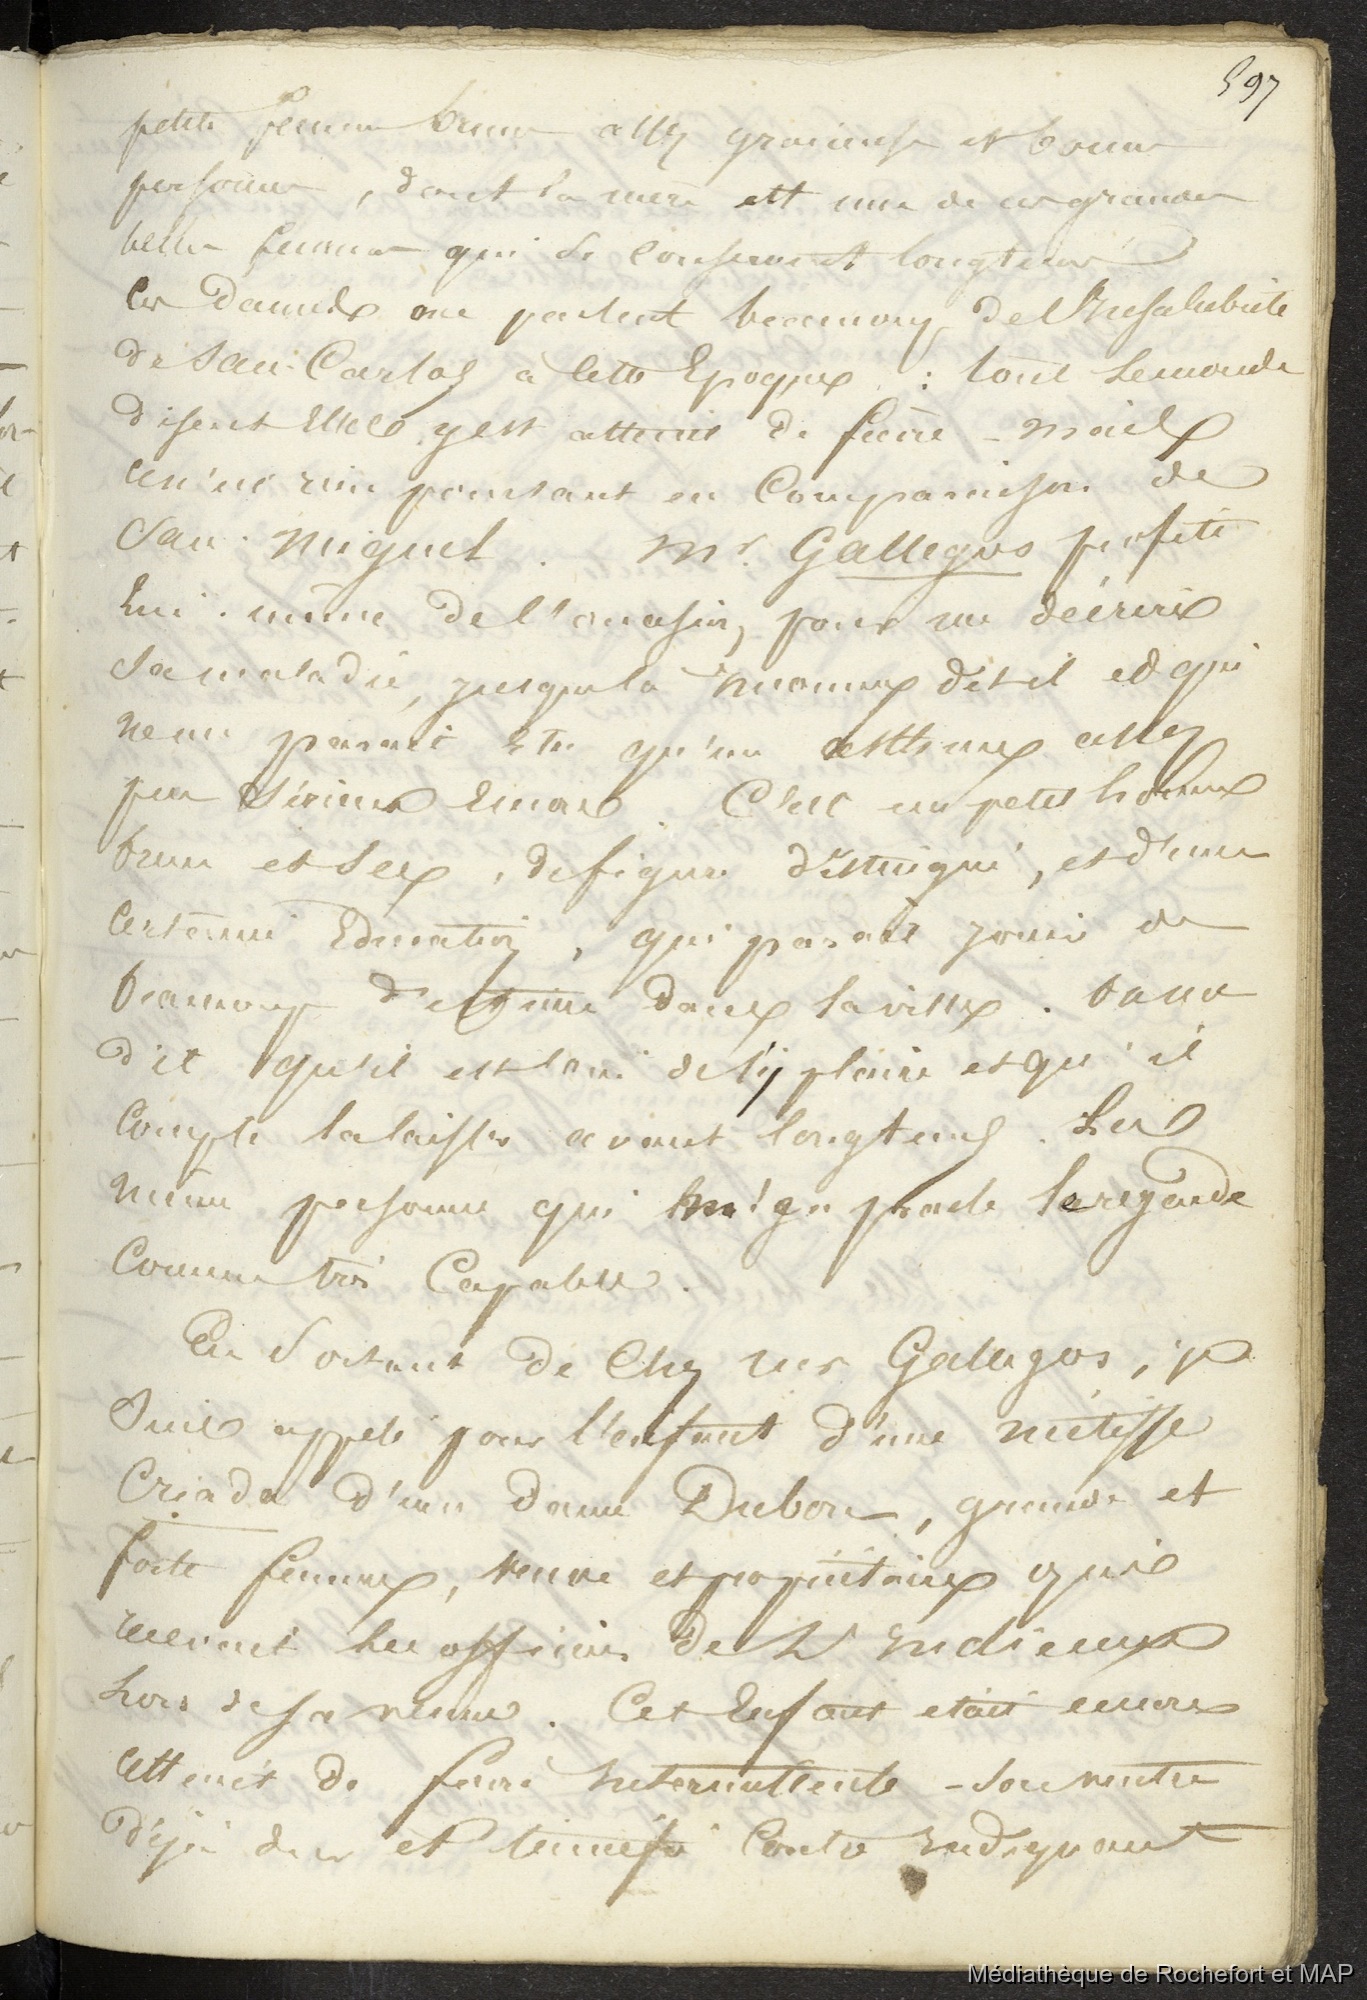 597
petite femme brune assez gracieuse et bonne
personne, dont la mere est une de ces grandes
belles femmes qui se conservent longtems
ces dames me parlent beaucoup de l'Insalubrité
de San-Carlos à cette Epoque : tout le monde
disent Elles y est atteint de fievre - mais
ce n'est rien pourtant en Comparaison de
San-Miguel. Mr. Gallegos profite
lui-même de l'occasion, pour me décrire
sa maladie, jusque la inconnue dit il et qui
ne me parait etre qu'un asthme assez
peu sérieux Encore. C'est un petit homme
brun et sec, de figure distingué, et d'une
certaine Education, qui parait jouir de
beaucoup d'estime dans la ville. On me
dit qu'il est loin de s'y plaire et qu'il
compte la laisser avant longtems. Les
même personne qui m'en parle le regarde
comme très Capable.
En Sortant de Chez Mr Gallegos, je
suis appelé pour l'enfant d'une métisse
Criada d'une dame Dubon, grande et
forte femme, veuve et propriétaire qui
recevait les officiers de L'Indienne
lors de sa venue. Cet Enfant etait encore
atteint de fievre Intermittente - son ventre
déjà dur et tuméfié Contre Indiquant
Médiathèque de Rochefort et MAP